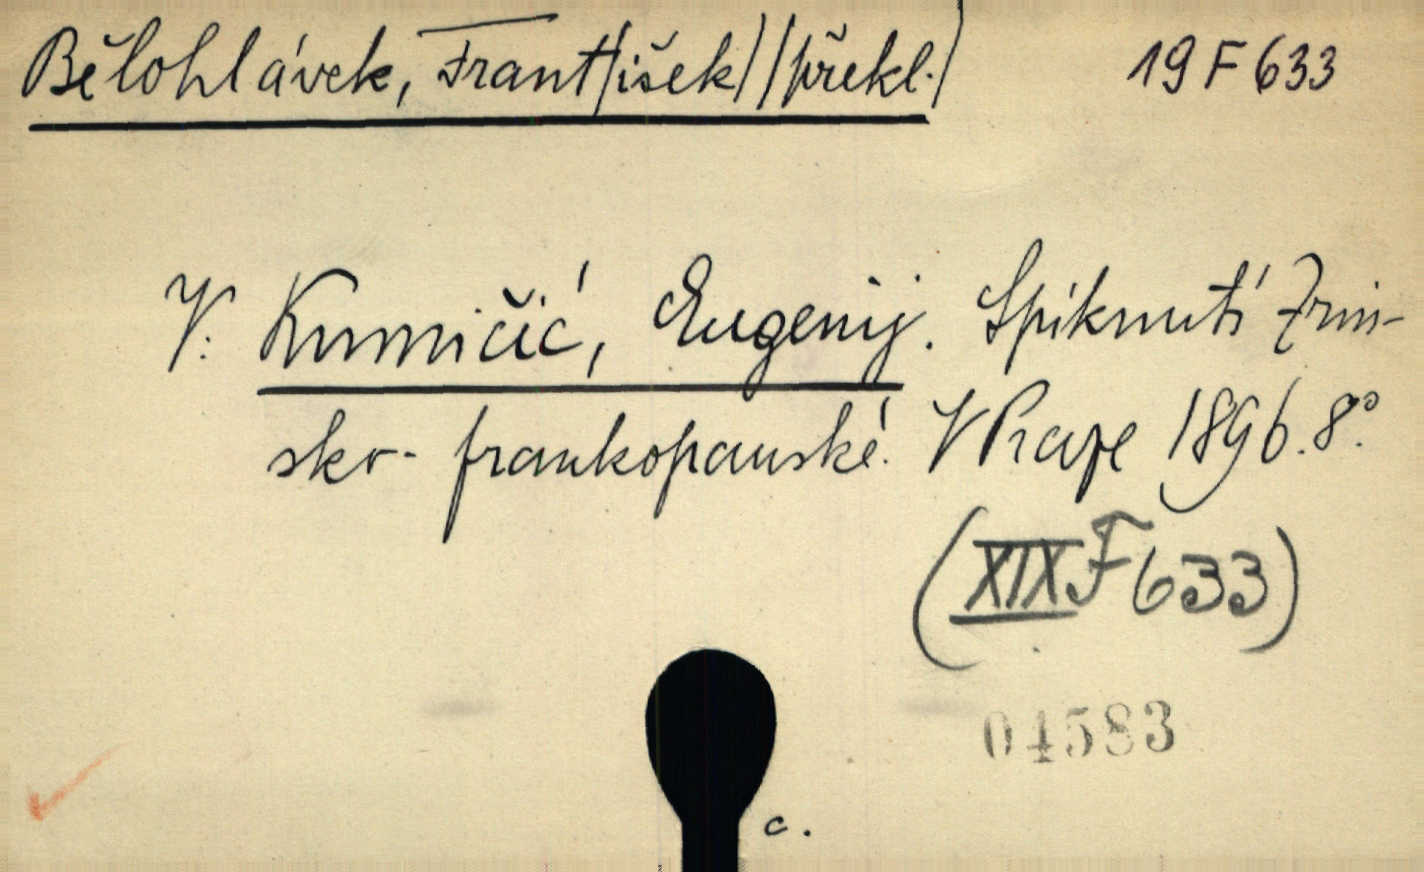 Bělohlávek, Frant/išek/ /překl./ 19 F 633
V: Kumičić, Eugenij. Spiknutí Zrin-
sko-frankopanské. V Praze 1896. 8°.
(XIX F 633)
04583
c.